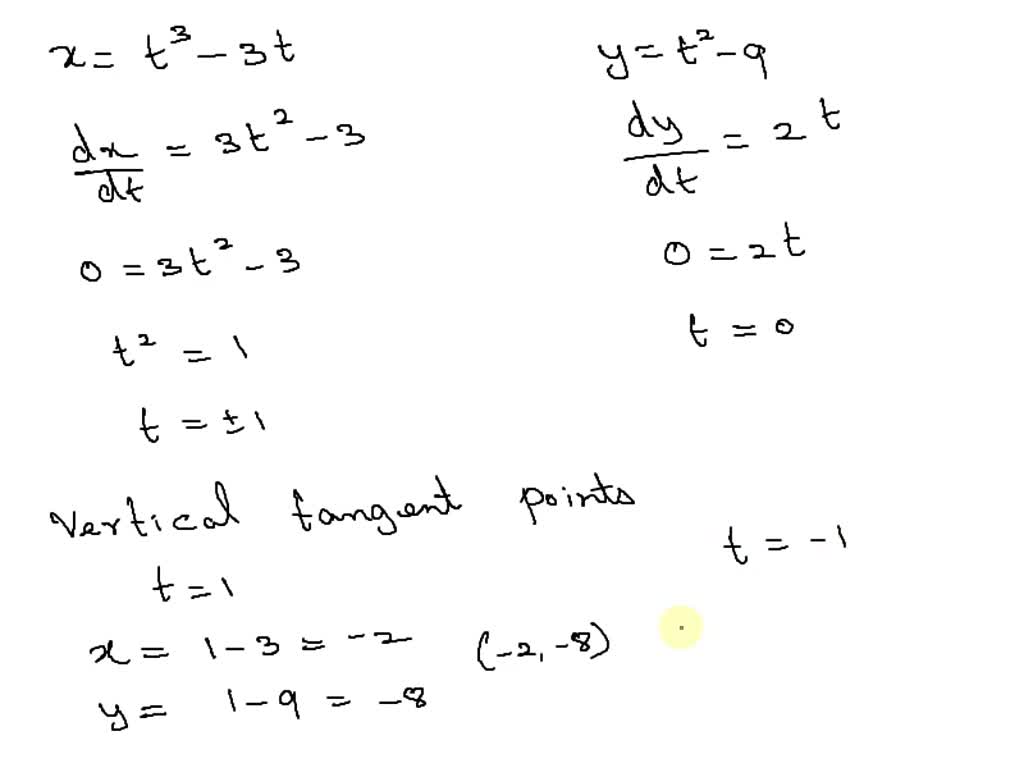 x = t³ - 3t
y = t² - 9
dx/dt = 3t² - 3
dy/dt = 2t
0 = 3t² - 3
0 = 2t
t² = 1
t = 0
t = ±1
Vertical tangent points
t = 1
t = -1
x = 1 - 3 = -2 (-2, -8)
y = 1 - 9 = -8